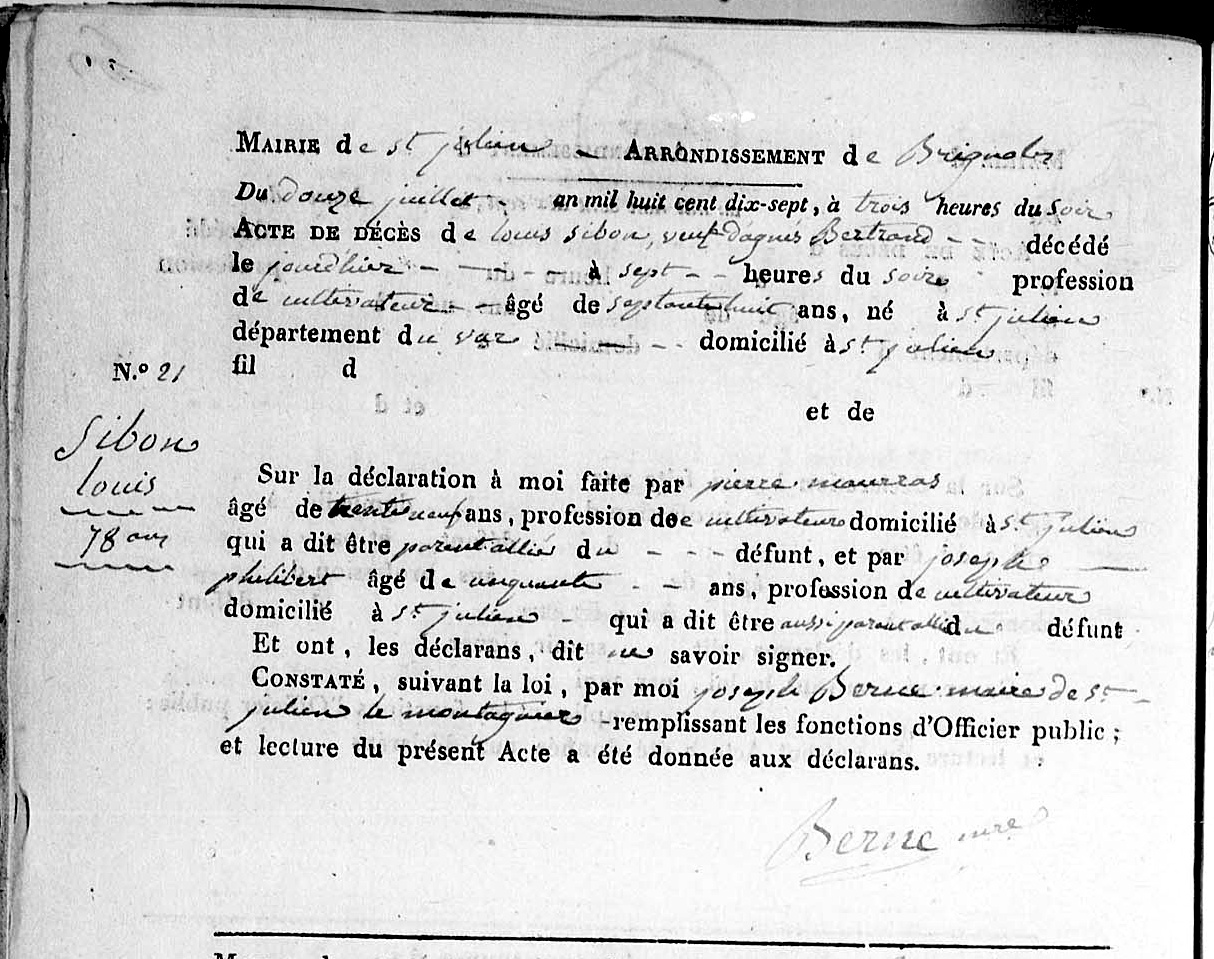 MAIRIE de st julien - ARRONDISSEMENT de Brignoles
Du douze juillet - an mil huit cent dix-sept, à trois heures du soir
ACTE DE DÉCÈS de louis sibon, veuf dagnes Bertrand - - décédé
le jourdhier - - - - à sept - - heures du soire profession
de cultivateur - - âgé de septante huit ans, né à st. julien
département du var - - domicilié à st. julien
N.° 21 fil d
et de
Sibon
louis
78 ans
Sur la déclaration à moi faite par pierre maurras
âgé de trente neuf ans, profession de cultivateur domicilié à st. julien
qui a dit être parent allié du - - - défunt, et par joseph
philibert âgé de cinquante - - ans, profession de cultivateur
domicilié à st. julien - qui a dit être aussi parent allié du défunt
Et ont, les déclarans, dit ne savoir signer.
CONSTATÉ, suivant la loi, par moi joseph Berne maire de st.
julien le montagnier - remplissant les fonctions d'Officier public ;
et lecture du présent Acte a été donnée aux déclarans.
Berne mre